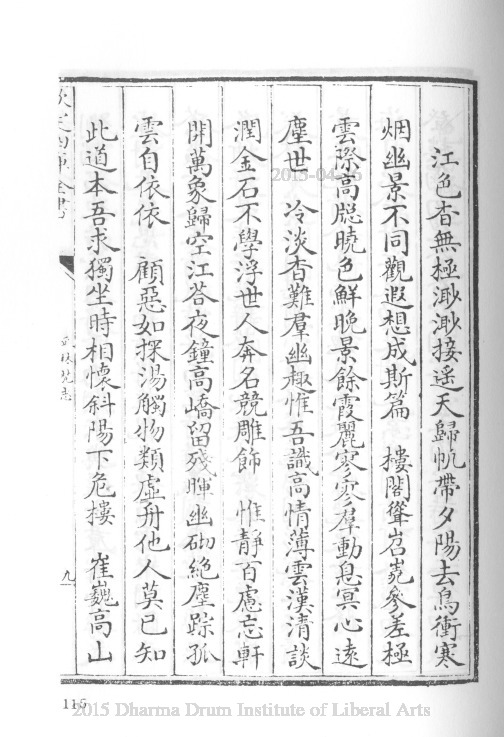 江色杳無極渺渺接遥天歸帆帶夕陽去鳥衝寒
烟幽景不同觀遐想成斯篇　樓閣聳岧嶤參差極
雲際高牕曉色鮮晚景餘霞麗寥寥羣動息冥心遠
塵世　冷淡杳難羣幽趣惟吾識高情薄雲漢清談
潤金石不學浮世人奔名競雕飾　惟靜百慮忘軒
開萬象歸空江荅夜鐘高嶠留殘暉幽砌絶塵踪孤
雲自依依　顧惡如探湯觸物類虚舟他人莫已知
此道本吾求獨坐時相懷斜陽下危樓　崔巍高山
欽定四庫全書
林梵志
九
115
2015 Dharma Drum Institute of Liberal Arts